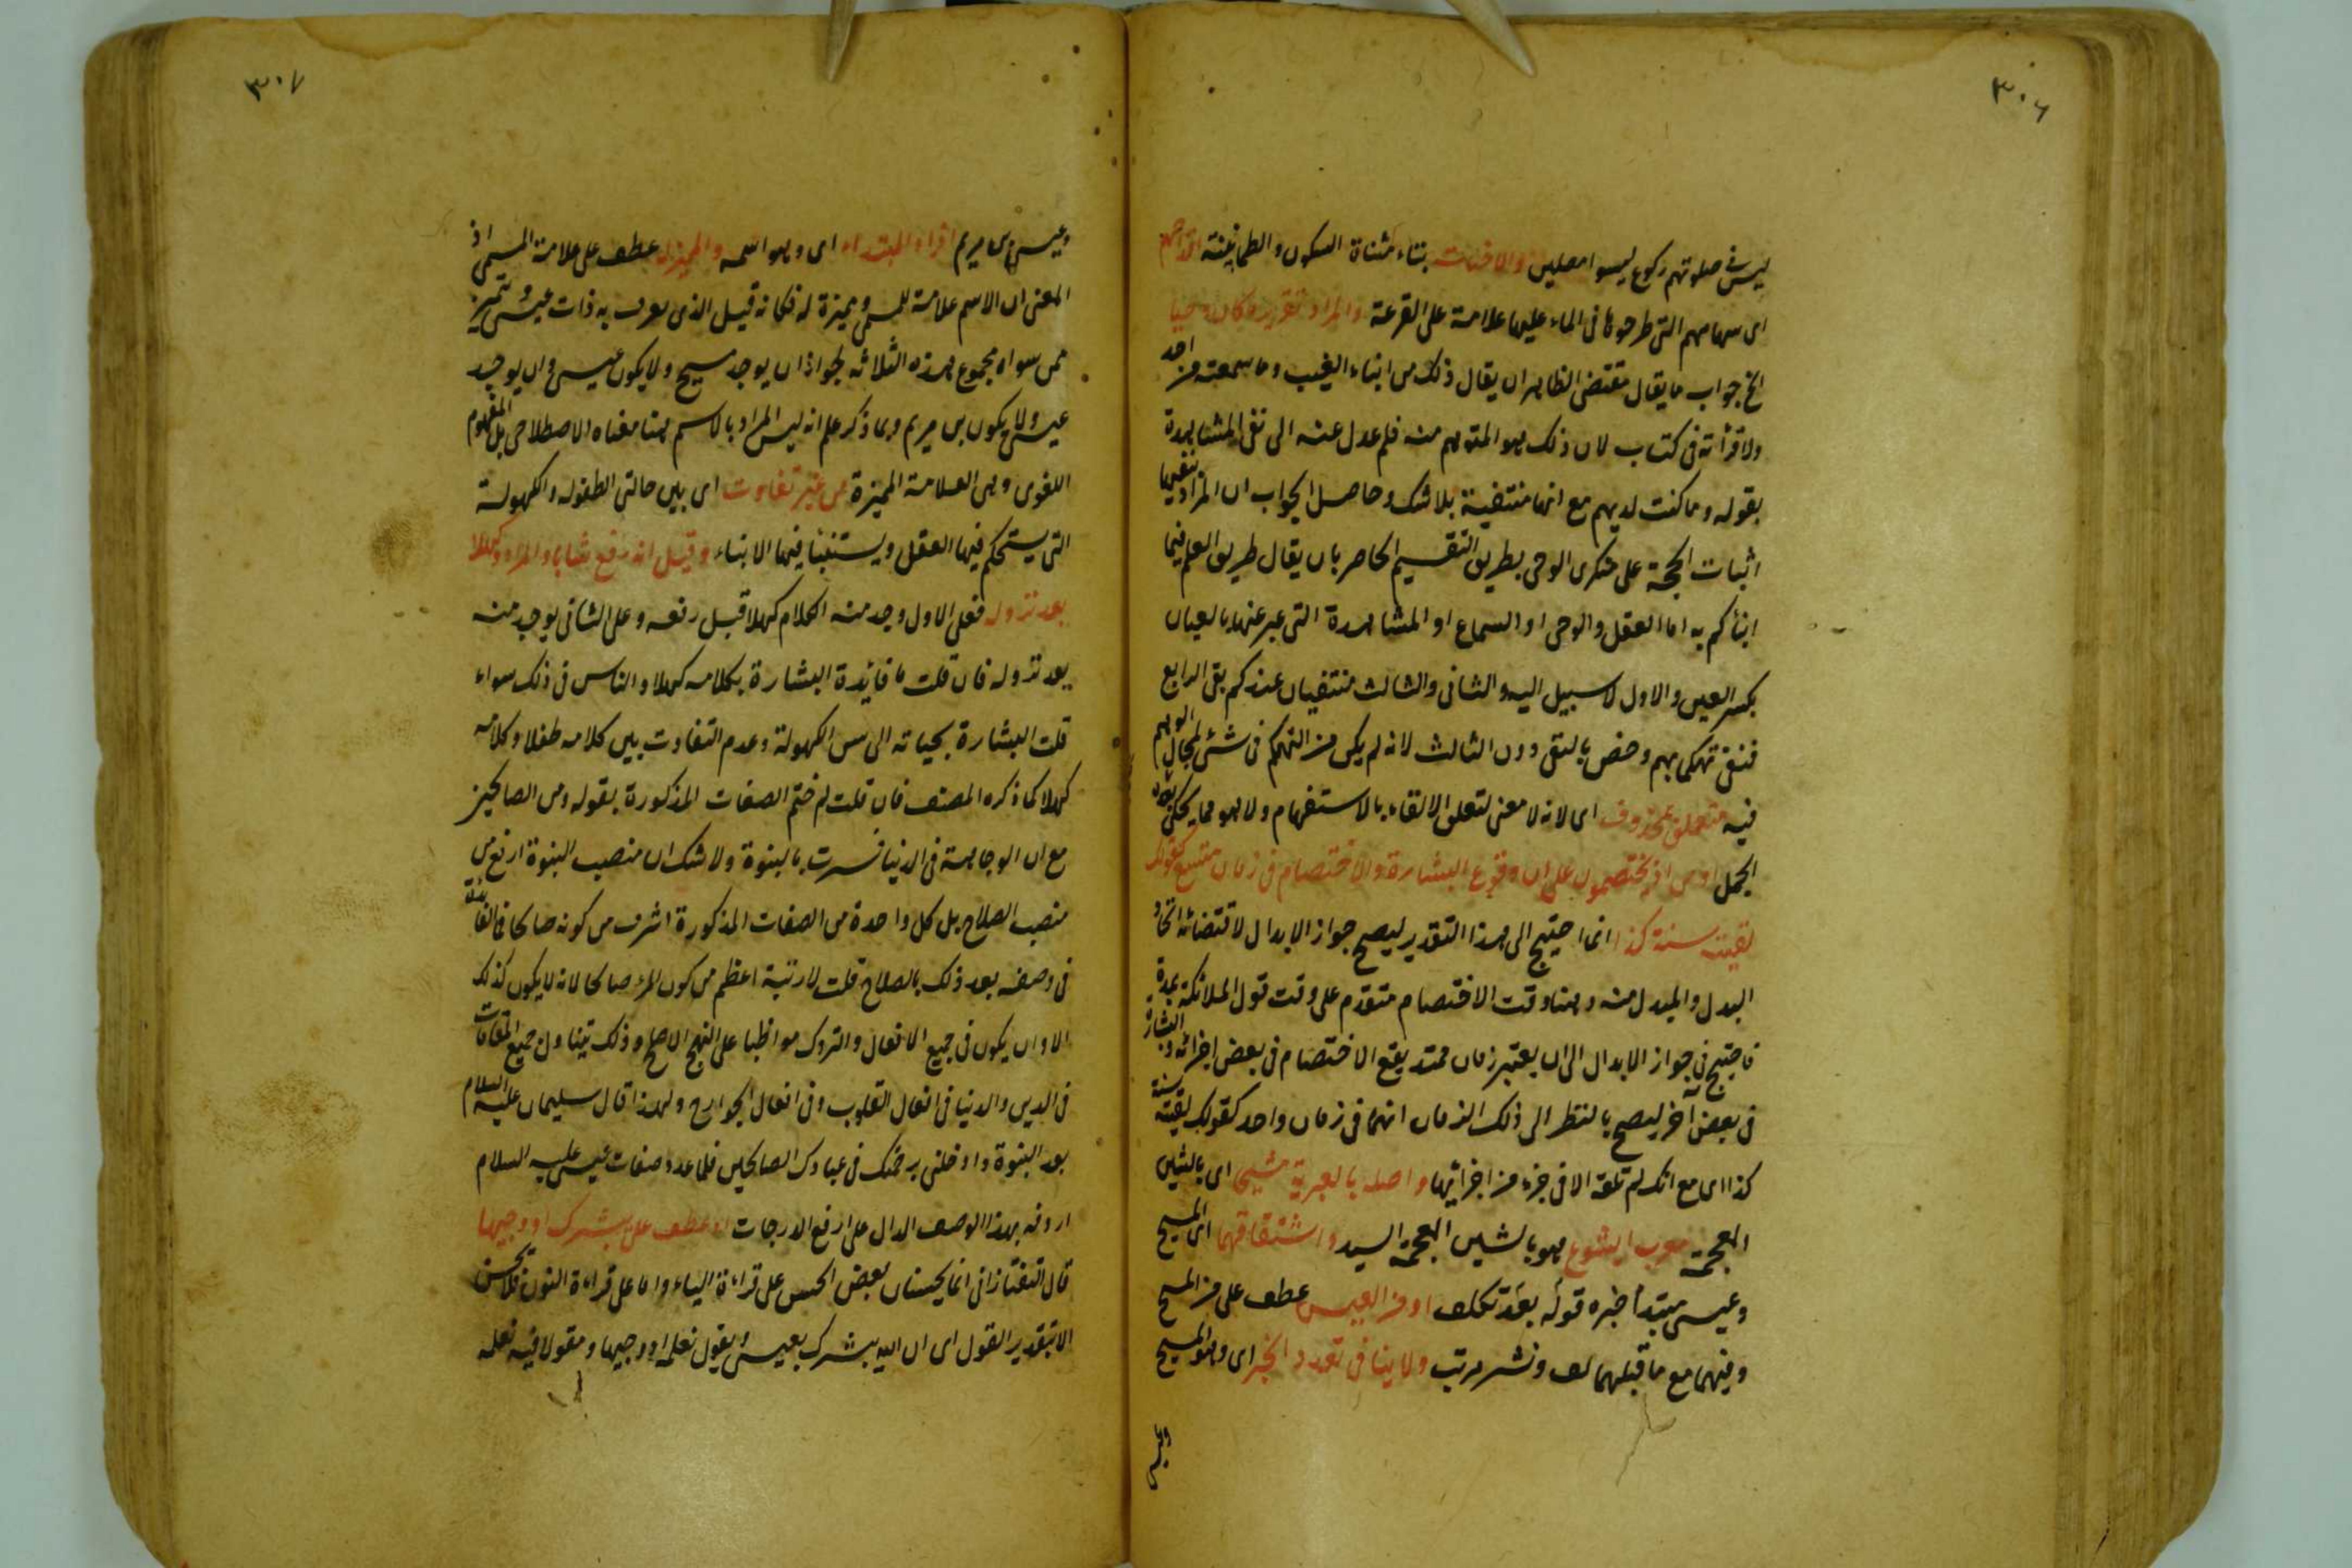 ٣٠٦
ليس في صلوتهم ركوع ليسوا مصلين والاخبات بتاء مثناة السكون والطمأنينة اقداحهم
اى سهامهم التى طرحوها فى الماء عليها علامة على القرعة والمراد تقرير ما كان وحيا
الخ جواب ما يقال مقتضى الظاهر ان يقال ذلك من انباء الغيب وما سمعته من احد
ولا قرأته فى كتاب لان ذلك هو المتوهم منه فلم عدل عنه الى نفى المشاهدة
بقوله وما كنت لديهم مع انها منتفية بلا شك وحاصل الجواب ان المراد بنفيها
اثبات الحجة على منكرى الوحى بطريق التقسيم الحاصر بان يقال طريق العلم فيما
انبأكم به اما العقل والوحى او السماع او المشاهدة التى عبر عنها بالعيان
بكسر العين والاول لا سبيل اليه والثانى والثالث منتفيان عندكم بقى الرابع
فنفى تهكما بهم وخص بالنفى دون الثالث لانه لم يكن من التهكم فى شئ لمجال الوهم
فيه متعلق بمحذوف اى لانه لا معنى لتعلق الالقاء بالاستفهام ولا هو مما يحكى بعده
الجمل او من اذ يختصمون على ان وقوع البشارة والاختصام فى زمان متسع كقولك
لقيته سنة كذا انما احتيج الى هذا التقدير ليصح جواز الابدال لاقتضائه اتحاد
البدل والمبدل منه وهنا وقت الاختصام متقدم على وقت قول الملائكة بمدة
فاحتيج فى جواز الابدال الى ان يعتبر زمان ممتد يقع الاختصام فى بعض اجزائه والبشارة
فى بعض آخر ليصح بالنظر الى ذلك الزمان انهما فى زمان واحد كقولك لقيته سنة
كذا اى مع انك لم تلقه الا فى جزء من اجزائها واصله بالعبرية مشيحا اى بالشين
المعجمة معرب ايشوع هو بالشين المعجمة السيد واشتقاقهما اى المسيح
وعيسى مبتدأ خبره قوله بعد تكلف او من العيس عطف على من المسح
وفيهما مع ما قبلهما لف ونشر مرتب ولا ينافى تعدد الخبر اى وهو المسيح
وعيسى
٣٠٧
وعيسى بن مريم افراد المبتدأ اى وهو اسمه والمميزة عطف على علامة المسمى اذ
المعنى ان الاسم علامة للمسمى ومميزة له فكانه قيل الذى يعرف به ذات عيسى ويتميز
ممن سواه مجموع هذه الثلاثه لجواز ان يوجد مسيح ولا يكون عيسى وان يوجد
عيسى ولا يكون بن مريم وبما ذكر علم انه ليس المراد بالاسم هنا معناه الاصطلاحى بل المفهوم
اللغوى وهى العلامة المميزة من غير تفاوت اى بين حالتى الطفوله والكهولة
التى يستحكم فيها العقل ويستنبأ فيها الانبياء وقيل انه رفع شابا والمراد وكهلا
بعد نزوله فعلى الاول وجد منه الكلام كهلا قبل رفعه وعلى الثانى يوجد منه
بعد نزوله فان قلت ما فائدة البشارة بكلامه كهلا والناس فى ذلك سواء
قلت البشارة بحياته الى سن الكهولة وعدم التفاوت بين كلامه طفلا وكلامه
كهلا كما ذكره المصنف فان قلت لم ختم الصفات المذكورة بقوله ومن الصالحين
مع ان الوجاهة فى الدنيا فسرت بالنبوة ولا شك ان منصب النبوة ارفع من
منصب الصلاح بل كل واحدة من الصفات المذكورة اشرف من كونه صالحا فما الفائدة
فى وصفه بعد ذلك بالصلاح قلت لا رتبة اعظم من كون المرء صالحا لانه لا يكون كذلك
الا وان يكون فى جميع الافعال والتروك مواظبا على النهج الاصلح وذلك يتناول جميع المقامات
فى الدين والدنيا فى افعال القلوب وفى افعال الجوارح ولهذا قال سليمان عليه السلام
بعد النبوة وادخلنى برحمتك فى عبادك الصالحين فلما عدد صفات عيسى عليه السلام
اردفه بهذا الوصف الدال على ارفع الدرجات او عطف على يبشرك او وجيها
قال التفتازانى انما يحسنان بعض الحسن على قراءة الياء واما على قراءة النون فلا يحسن
الا بتقدير القول اى ان الله يبشرك بعيسى ويقول نعلمه او وجيها ومقولا فيه نعلمه